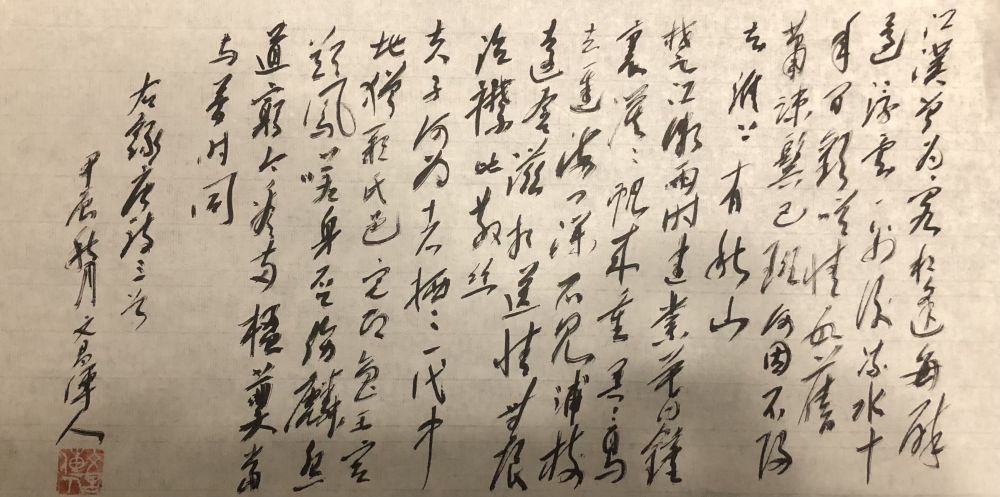 江漢曾为客相逢每醉
還浮雲一别後流水十
年間歡笑情如舊
蕭疎鬓已斑何因不歸
去淮上有秋山
楚江微雨时建業暮鐘
裏漠々帆来重冥々鳥
去遲海门深不见浦樹
遠含滋相送情無限
沾襟比散丝
夫子何为者栖々一代中
地猶鄹氏邑宅即魯王宫
歎鳳嗟身否傷麟怨
道窮今看两楹奠當
与夢时同
右錄唐詩三首
甲辰秋月文